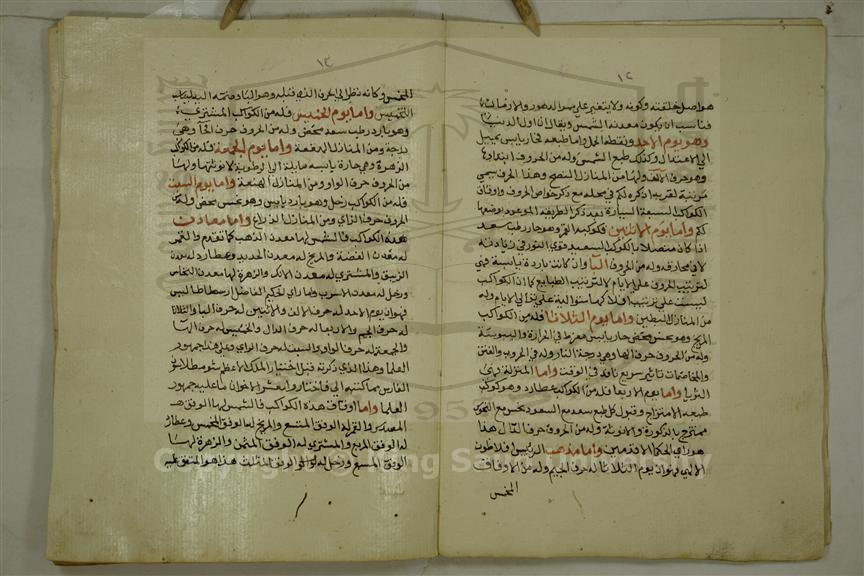 ١٢
هو اصل خلقته وكونه ولا يتغير على مر الدهور والازمان
فناسب ان يكون معدنه الشمس ويقال ان اول الدنيا
وهو يوم الاحد ونقطة الحمل واما طبعه فحار يابس يميل
الى الاعتدال وكذلك طبع الشمس وله من الحروف ابتداؤها
وهو حرف الالف ولها من المنازل النطح وهذا الحرف يسمى
الكواكب السبعة السيارة بعد ذكر الطريقة الموعود بوضعها
لكم واما يوم الاثنين فكوكبه القمر وهو حار رطب سعد
اذا كان متصلا بالكواكب السعيدة قوي النور في زيادته
لا في محاقه وله من الحروف البا وان كانت باردة يابسة فهي
لترتيب الحروف على الايام لا لترتيب الطبايع كما ان الكواكب
ليست على ترتيب افلاكها متوالية على توالي الايام وله
من المنازل البطين واما يوم الثلاثا فله من الكواكب
المريخ وهو نحس محض حار يابس مفرط في الحرارة واليبوسة
وله من الحروف حرف الجا وهي درجة النار وله في الحروب والفتن
والمخاصمات تاثير سريع نافذ في الوقت واما المنزلة فهي
الثريا واما يوم الاربعا فله من الكواكب عطارد وهو كوكب
طبعه الامتزاج وقبول كل طبع سعد مع السعود نحس مع النحوس
ممتزج بالذكورة والانوثة وله من الحروف حرف الدال هذا
هو راي الحكما الاقدمين واما مذهب الرئيس افلاطون
الالهي فهو ان يوم الثلاثا له حرف الجيم وله من الاوفاق
المخمس
١٣
المخمس وكانه نظر الى الحرف الذي قبله وهو الباء
الخميس واما يوم الخميس فله من الكواكب المشتري
وهو بارد رطب سعد محض وله من الحروف حرف الها وهي
درجة ومن المنازل الهقعة واما يوم الجمعة فله من الكواكب
الزهرة وهي حارة يابسة مايلة الى الرطوبة لانوثتها ولها
من الحروف حرف الواو ومن المنازل الهنعة واما يوم السبت
فله من الكواكب زحل وهو بارد يابس وهو نحس محض وله من
الحروف حرف الزاي ومن المنازل الذراع واما معادن
هذه الكواكب فالشمس لها معدن الذهب كما تقدم والقمر
له معدن الفضة والمريخ له معدن الحديد وعطارد له معدن
الزيبق والمشتري له معدن الانك والزهرة لها معدن النحاس
وزحل له معدن الاسرب واما راي الحكيم الفاضل ارسطاطاليس
فهو ان يوم الاحد له حرف الالف والاثنين له حرف البا والثلاثا
له حرف الجيم والاربعا له حرف الدال والخميس له حرف الها
والجمعة له حرف الواو والسبت له حرف الزاي وعلى هذا جمهور
العلما وهذا الذي ذكرته قبل اختيار الملك الاعظم
الفارس بمكاتبته الي فاختاروا معشر الاخوان ما عليه جمهور
العلما واما اوفاق هذه الكواكب فالشمس لها الوفق
المسدس والقمر له الوفق المتسع والمريخ له الوفق المخمس وعطارد
له الوفق المربع والمشتري له الوفق المثمن والزهرة لها
الوفق المسبع وزحل له الوفق المثلث هذا هو المتفق عليه